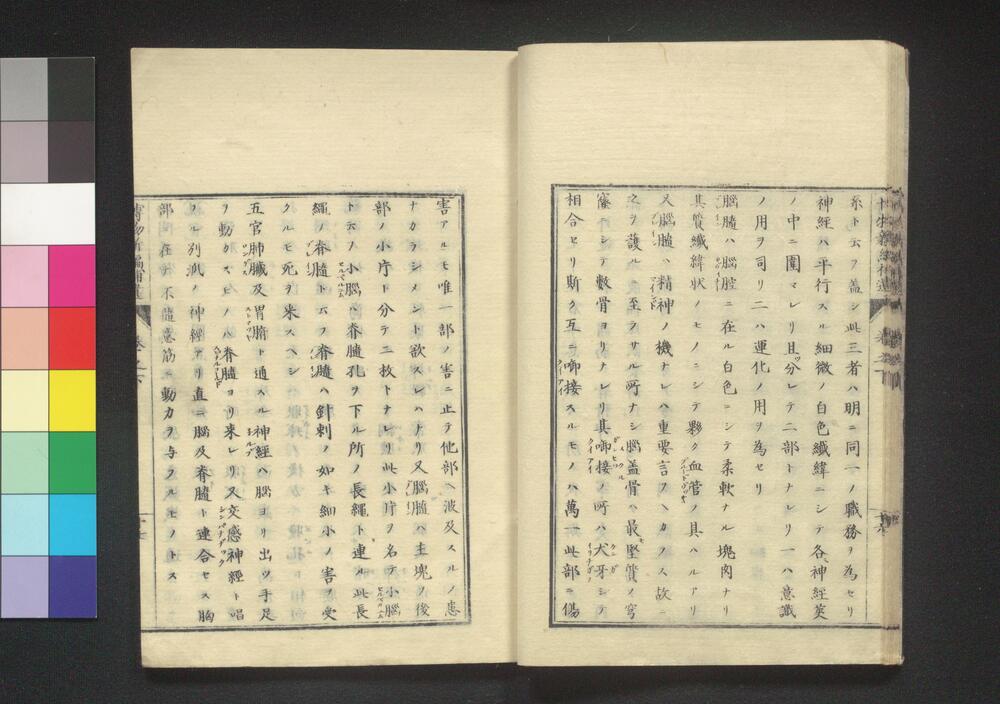 糸ト云フ蓋シ此三者ハ明ニ同一ノ職務ヲ為セリ
神経ハ平行スル細微ノ白色纖緯ニシテ各神経莢
ノ中ニ圍マレリ且分レテ二部トナレリ一ハ意識
ノ用ヲ司リ二ハ運化ノ用ヲ為セリ
腦髓ハ腦腔ニ在ル白色ニシテ柔軟ナル塊肉ナリ
其質纖緯状ノモノニシテ夥ク血管ノ具ハルアリ
又腦髓ハ精神ノ機ナレハ重要言フヘカラス故ニ
之ヲ護ル至ラサル所ナシ腦盖骨ハ最堅質ノ穹
窿ニシテ數骨ヨリナレリ其啣接ノ所ハ犬牙シテ
相合セリ斯ク互ニ啣接スルモノハ萬一此部ニ傷
害アルモ唯一部ノ害ニ止テ他部ヘ波及スルノ患
ナカラシメント欲スレハナリ又腦髓ハ主塊ノ後
部ノ小片ト分テ二枚トナレリ此小片ヲ名テ小腦
ト云フ小腦ハ脊髓孔ヲ下ル所ノ長繩ト連ル此長
繩ノ脊髓ト云フ脊髓ハ針刺ノ如キ細小ノ害ヲ受
クルモ死ヲ来スヘシ
五官肺臓及胃腑ト通ヘル神経ハ腦ヨリ出ツ手足
ヲ動カスモノハ脊髓ヨリ来レリ又交感神經ト唱
フル別派ノ神經アリ直ニ腦及脊髓ト連合セス胸
部ニ在テ不隨意筋ニ動力ヲ与フルモノトス